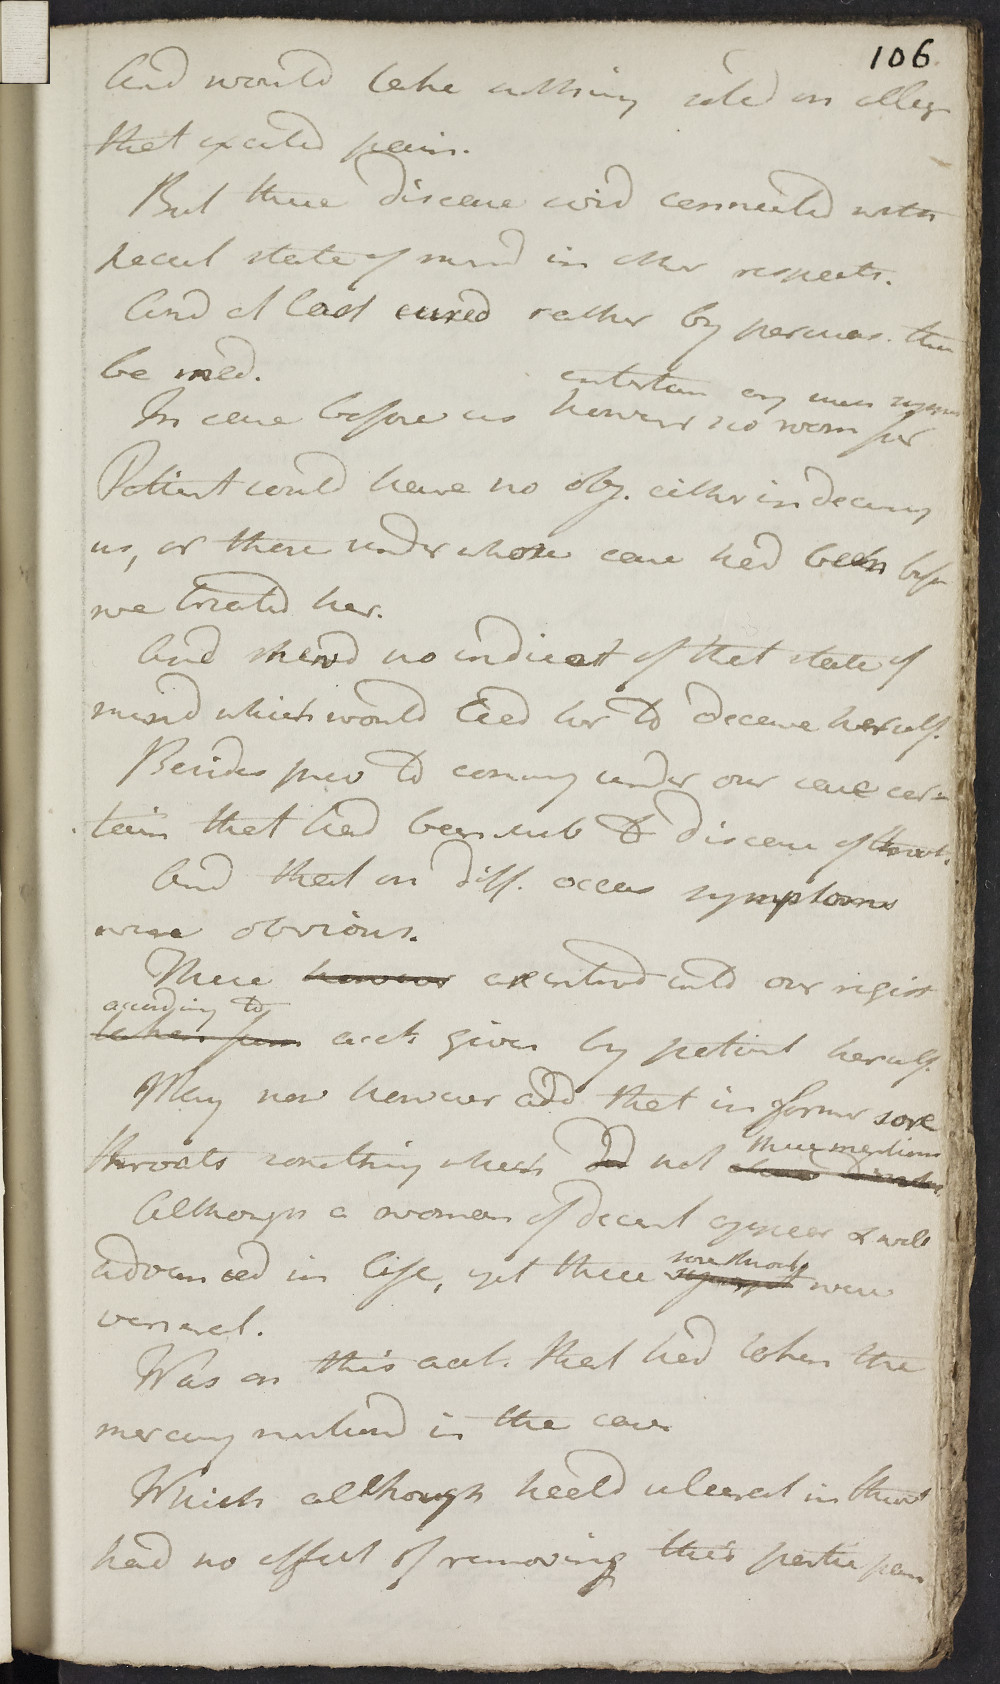 106
And would take nothing solid on alleg
that excited pain.
But there disease evid connected with
pecul state of mind in other respects.
And at last cured rather by persuas. than
be med.
entertain any such
In case before us however no room for
Patient could have no obj. either in deceiving
us, or those under whose care had been befor
we treated her.
And shewd no indicat of that state of
mind which would lead her to deceive herself.
Besides prev to coming under our care cer-
tain that had been sub to disease of throat.
And that on diff. occas symptoms
were obvious.
These however are entered into our regist
according to
taken from acct. given by patient herself.
May now however add that in former sore
throats something which did not then mention
Although a woman of decent appear & well
advanced in life, yet these sore throats were
venereal.
Was on this acct. that had taken the
mercury mentiond in the case
Which although heeld ulcerat in throat
had no effect of removing this partic pain